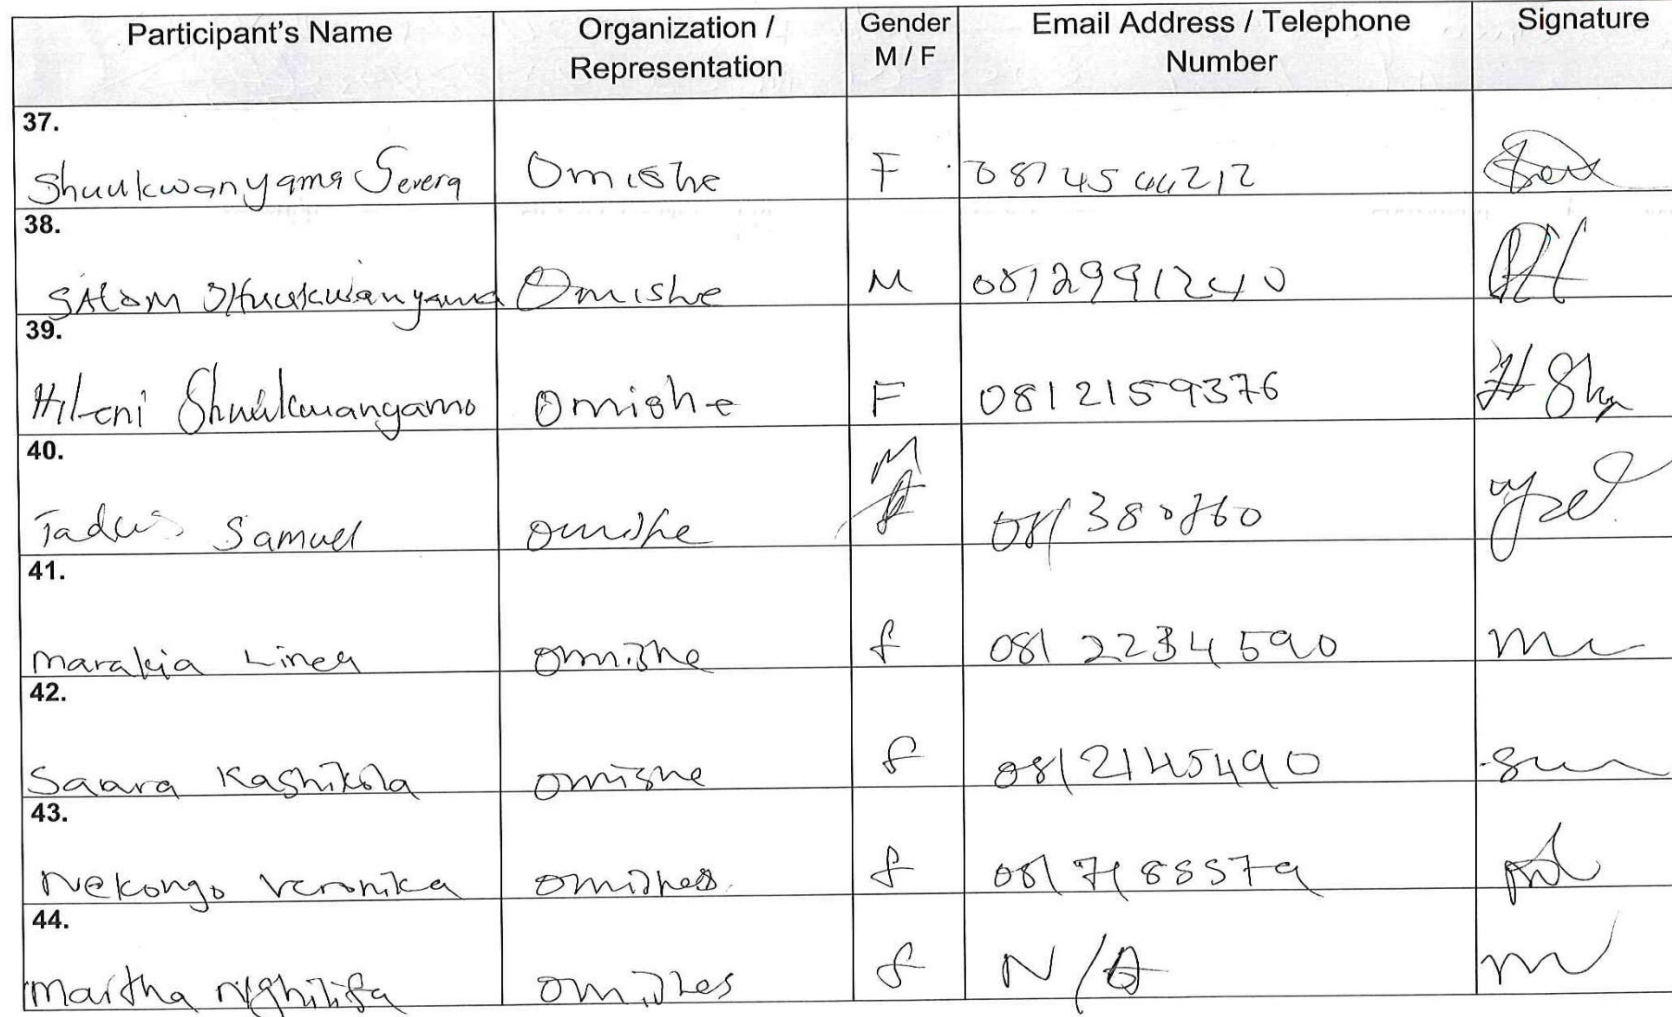 Participant's Name Organization / Representation Gender M / F Email Address / Telephone Number Signature
37.
Shuukwanyama Severa Omishe F
38.
SALOM SHuukwanyama Omishe M 0812991240
39.
Shuukwanyamo Omishe F 0812159376
40.
Tadeus Samuel omishe M
41.
marakia Linea omishe f 081 2234590
42.
Saara Kashikola omishe f 0812145490
43.
Nekongo veronika omishes f
44.
martha nghilifa omishes f N/A